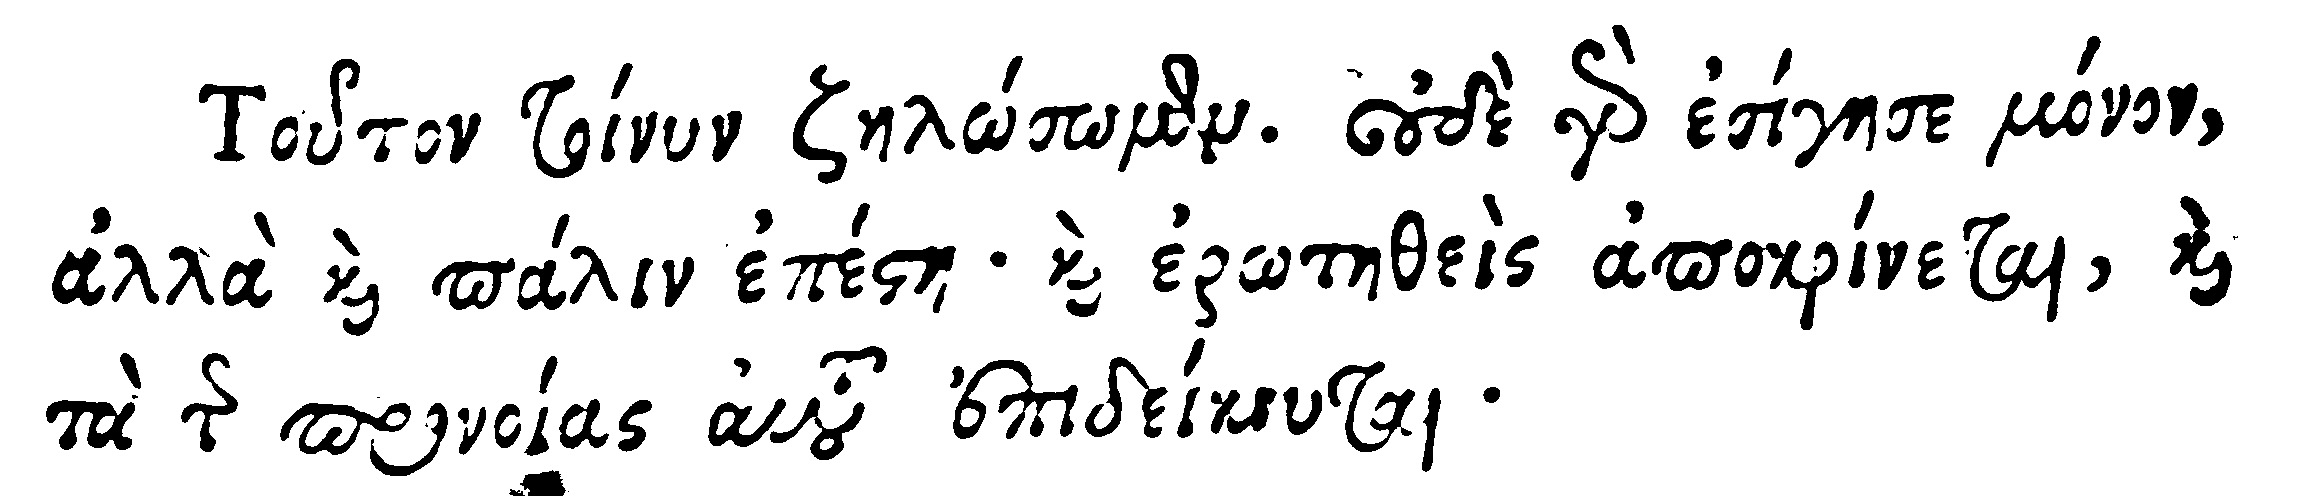 Τοῦτον τοίνυν ζηλώσωμεν. οὐδὲ γὰρ ἐσίγησε μόνον,
ἀλλὰ καὶ πάλιν ἐπέστη· καὶ ἐρωτηθεὶς ἀποκρίνεται, καὶ
τὰ τῆς προνοίας αὐτοῦ ἐπιδείκνυται·